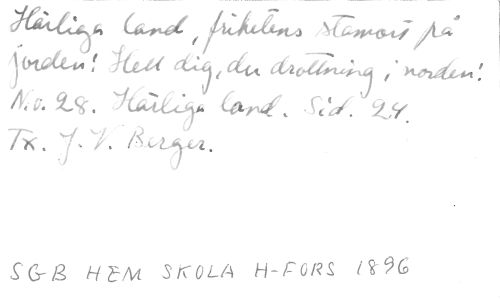 Härliga land, frihetens stamort på
jorden! Hell dig, du drottning i norden!
N:o. 28. Härliga land. Sid. 24.
Tx. J. V. Berger.
SGB HEM SKOLA H-FORS 1896